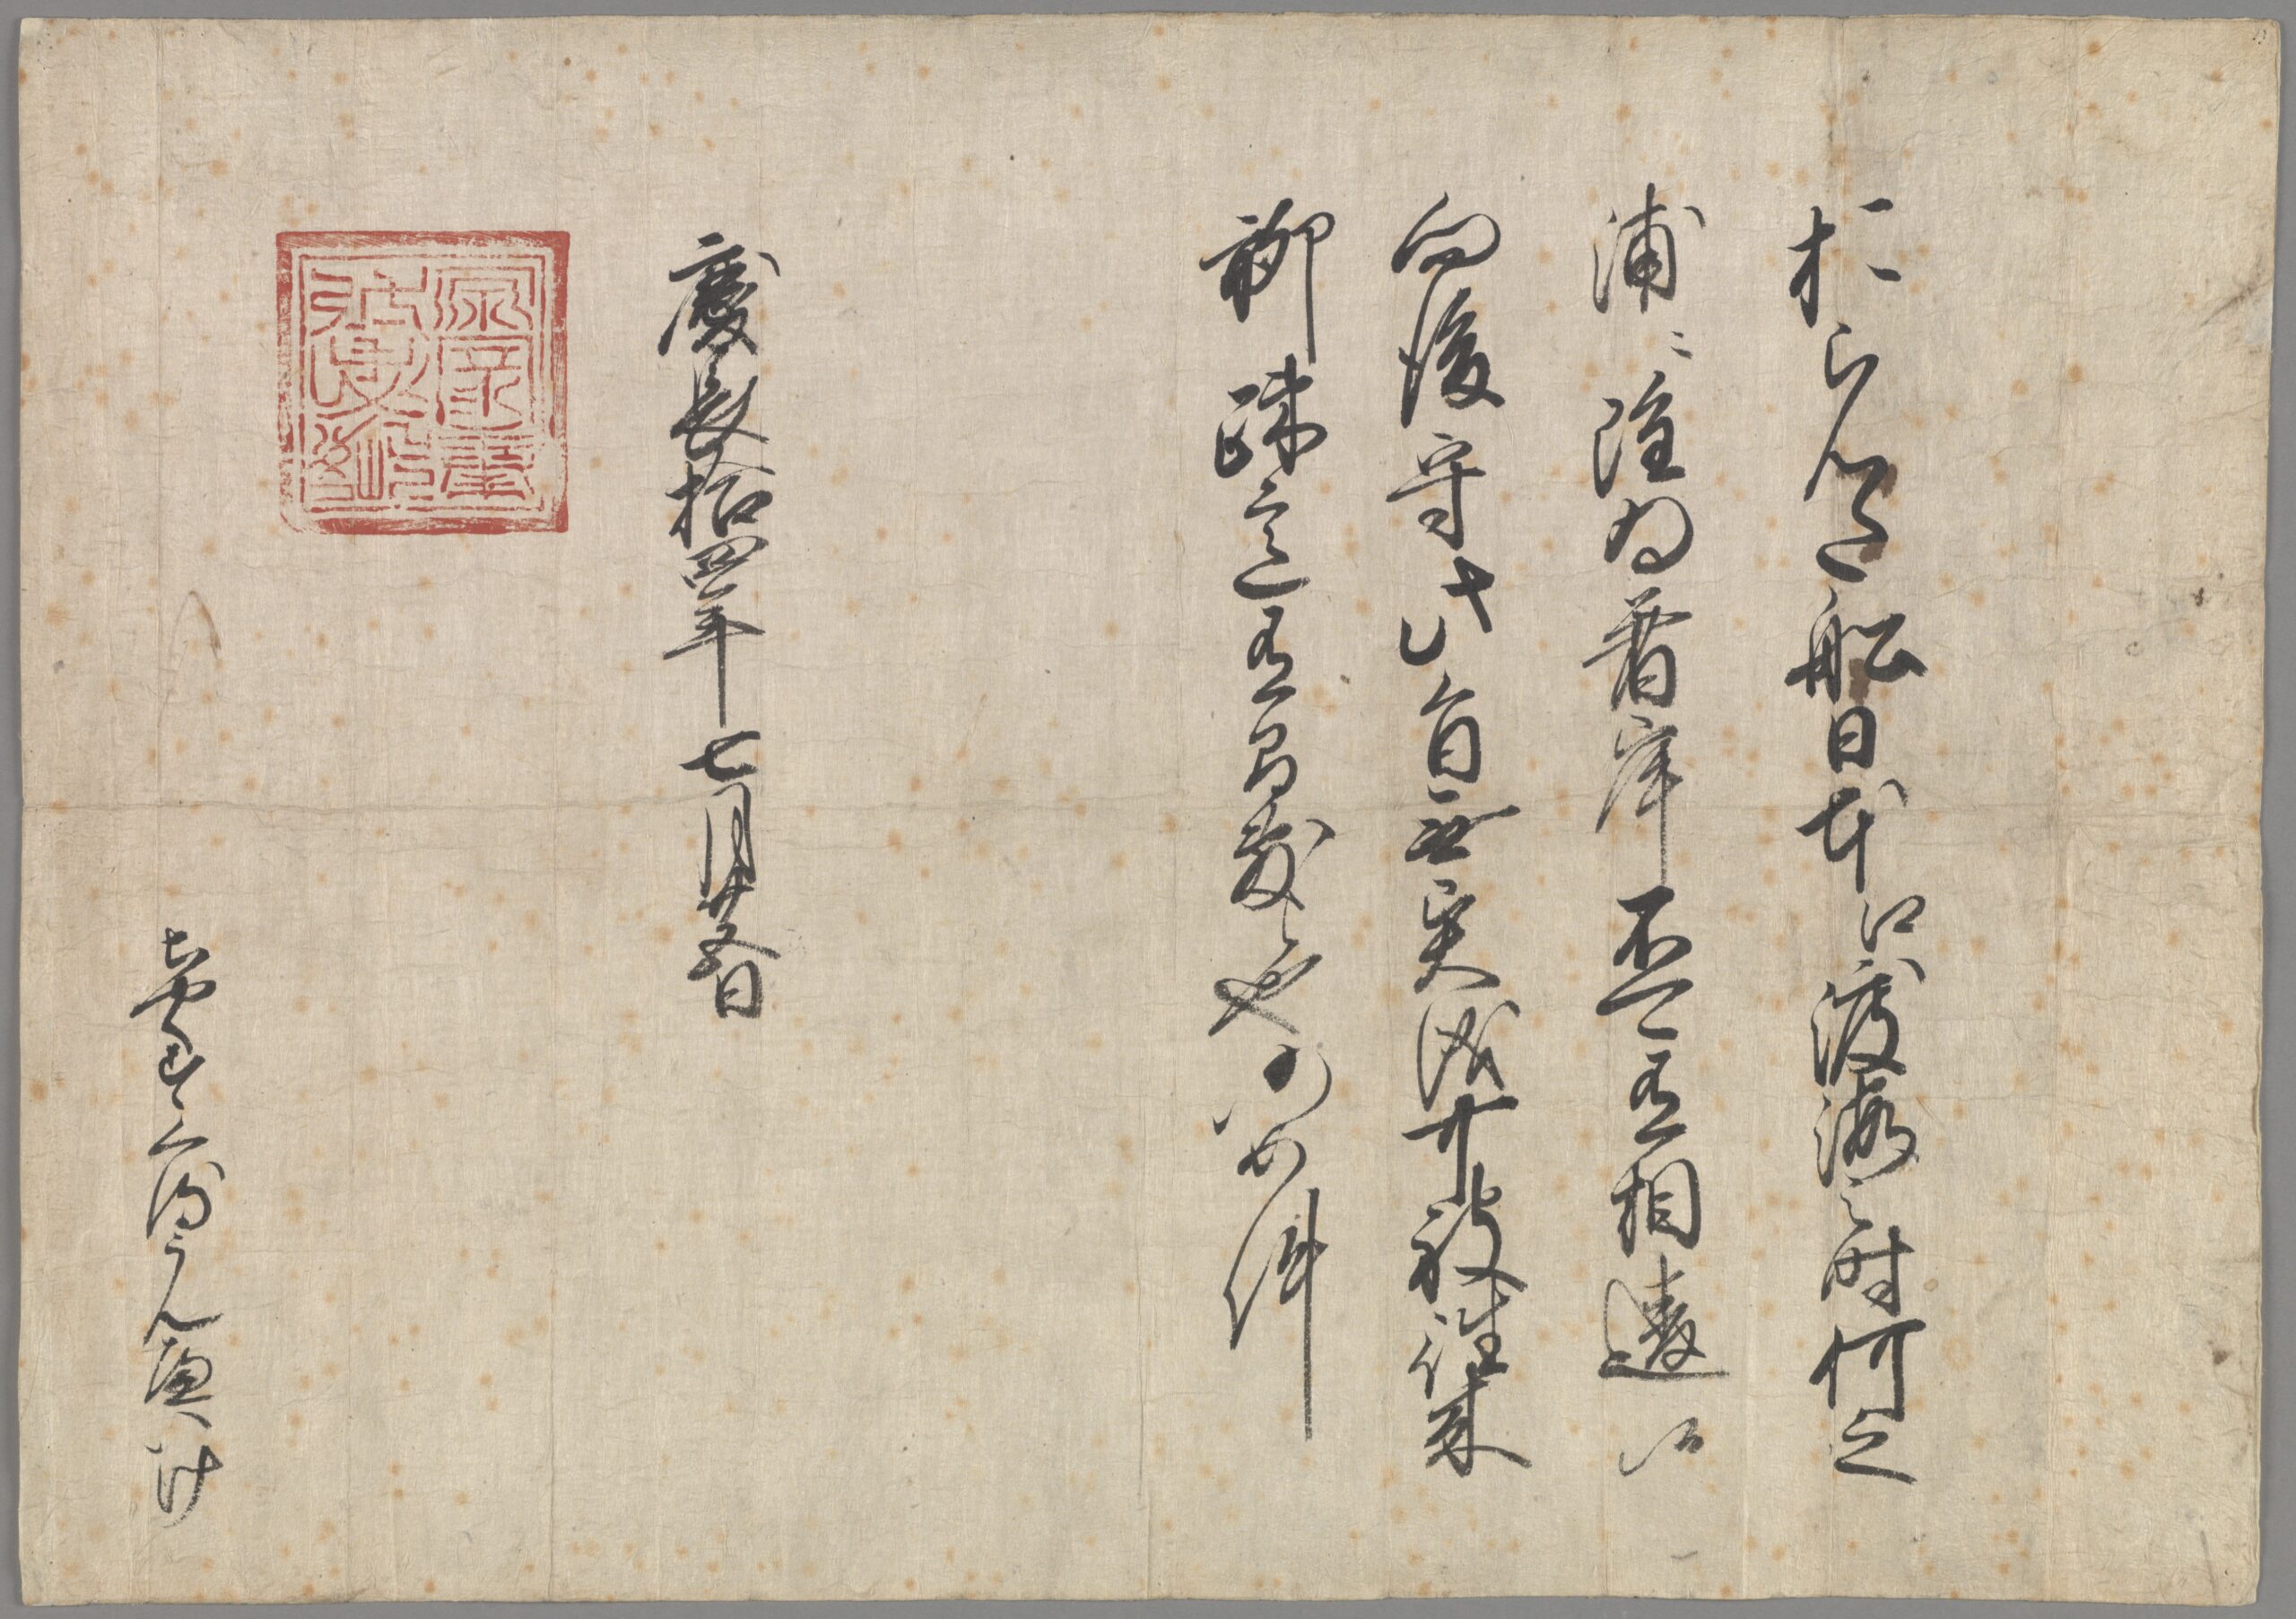 おらんた船日本江渡海之時何之
浦ニ雖為着岸不可有相違候
向後守此旨無異儀可被往来
聊疎意有間敷候也仍如件
慶長拾四年七月廿五日
ちやくすくるうんへいけ
源家康忠恕